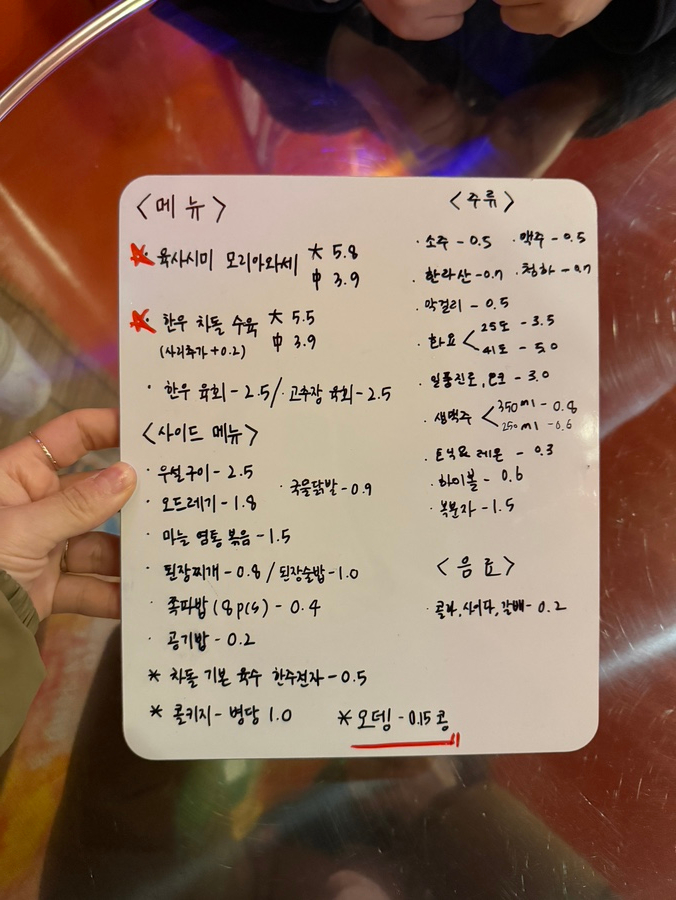 <메뉴>
육사시미 모리아와세 大 5.8
中 3.9
한우 차돌 수육 大 5.5
(사리추가 +0.2) 中 3.9
· 한우 육회 - 2.5 / · 고추장 육회 - 2.5
<사이드 메뉴>
· 우설구이 - 2.5
· 국물닭발 - 0.9
· 오드레기 - 1.8
· 마늘 염통 볶음 - 1.5
· 된장찌개 - 0.8 / 된장술밥 - 1.0
· 쪽파밥 (8p(s) - 0.4
· 공기밥 - 0.2
* 차돌 기본 육수 한주전자 - 0.5
* 콜키지 - 병당 1.0
* 오뎅 - 0.15 콩
<주류>
· 소주 - 0.5 · 맥주 - 0.5
· 한라산 - 0.7 · 청하 - 0.7
· 막걸리 - 0.5
· 화요 < 25도 - 3.5
41도 - 5.0
· 일품진로, - 3.0
· 생맥주 < 350ml - 0.8
250ml - 0.6
· 토닉요 레몬 - 0.3
· 하이볼 - 0.6
· 복분자 - 1.5
<음료>
· 콜라, 사이다, 갈배 - 0.2